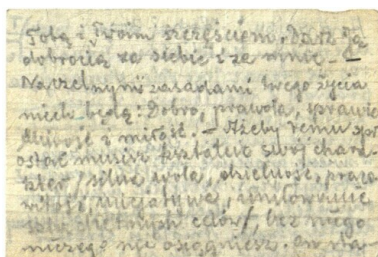 Tobą i Twoim szczęściem. Darz Ją
dobrocią za siebie i za mnie –
Naczelnymi zasadami twego życia
niech będą: Dobro, prawda, sprawie
dliwość i miłość. – Ażeby temu spr
ostać musisz kształcić swój chara-
kter, silna wola, dzielność, praco
witość, inicjatywę, umiłowanie
szlachetnych celów, bez niego
niczego nie osiągniesz.